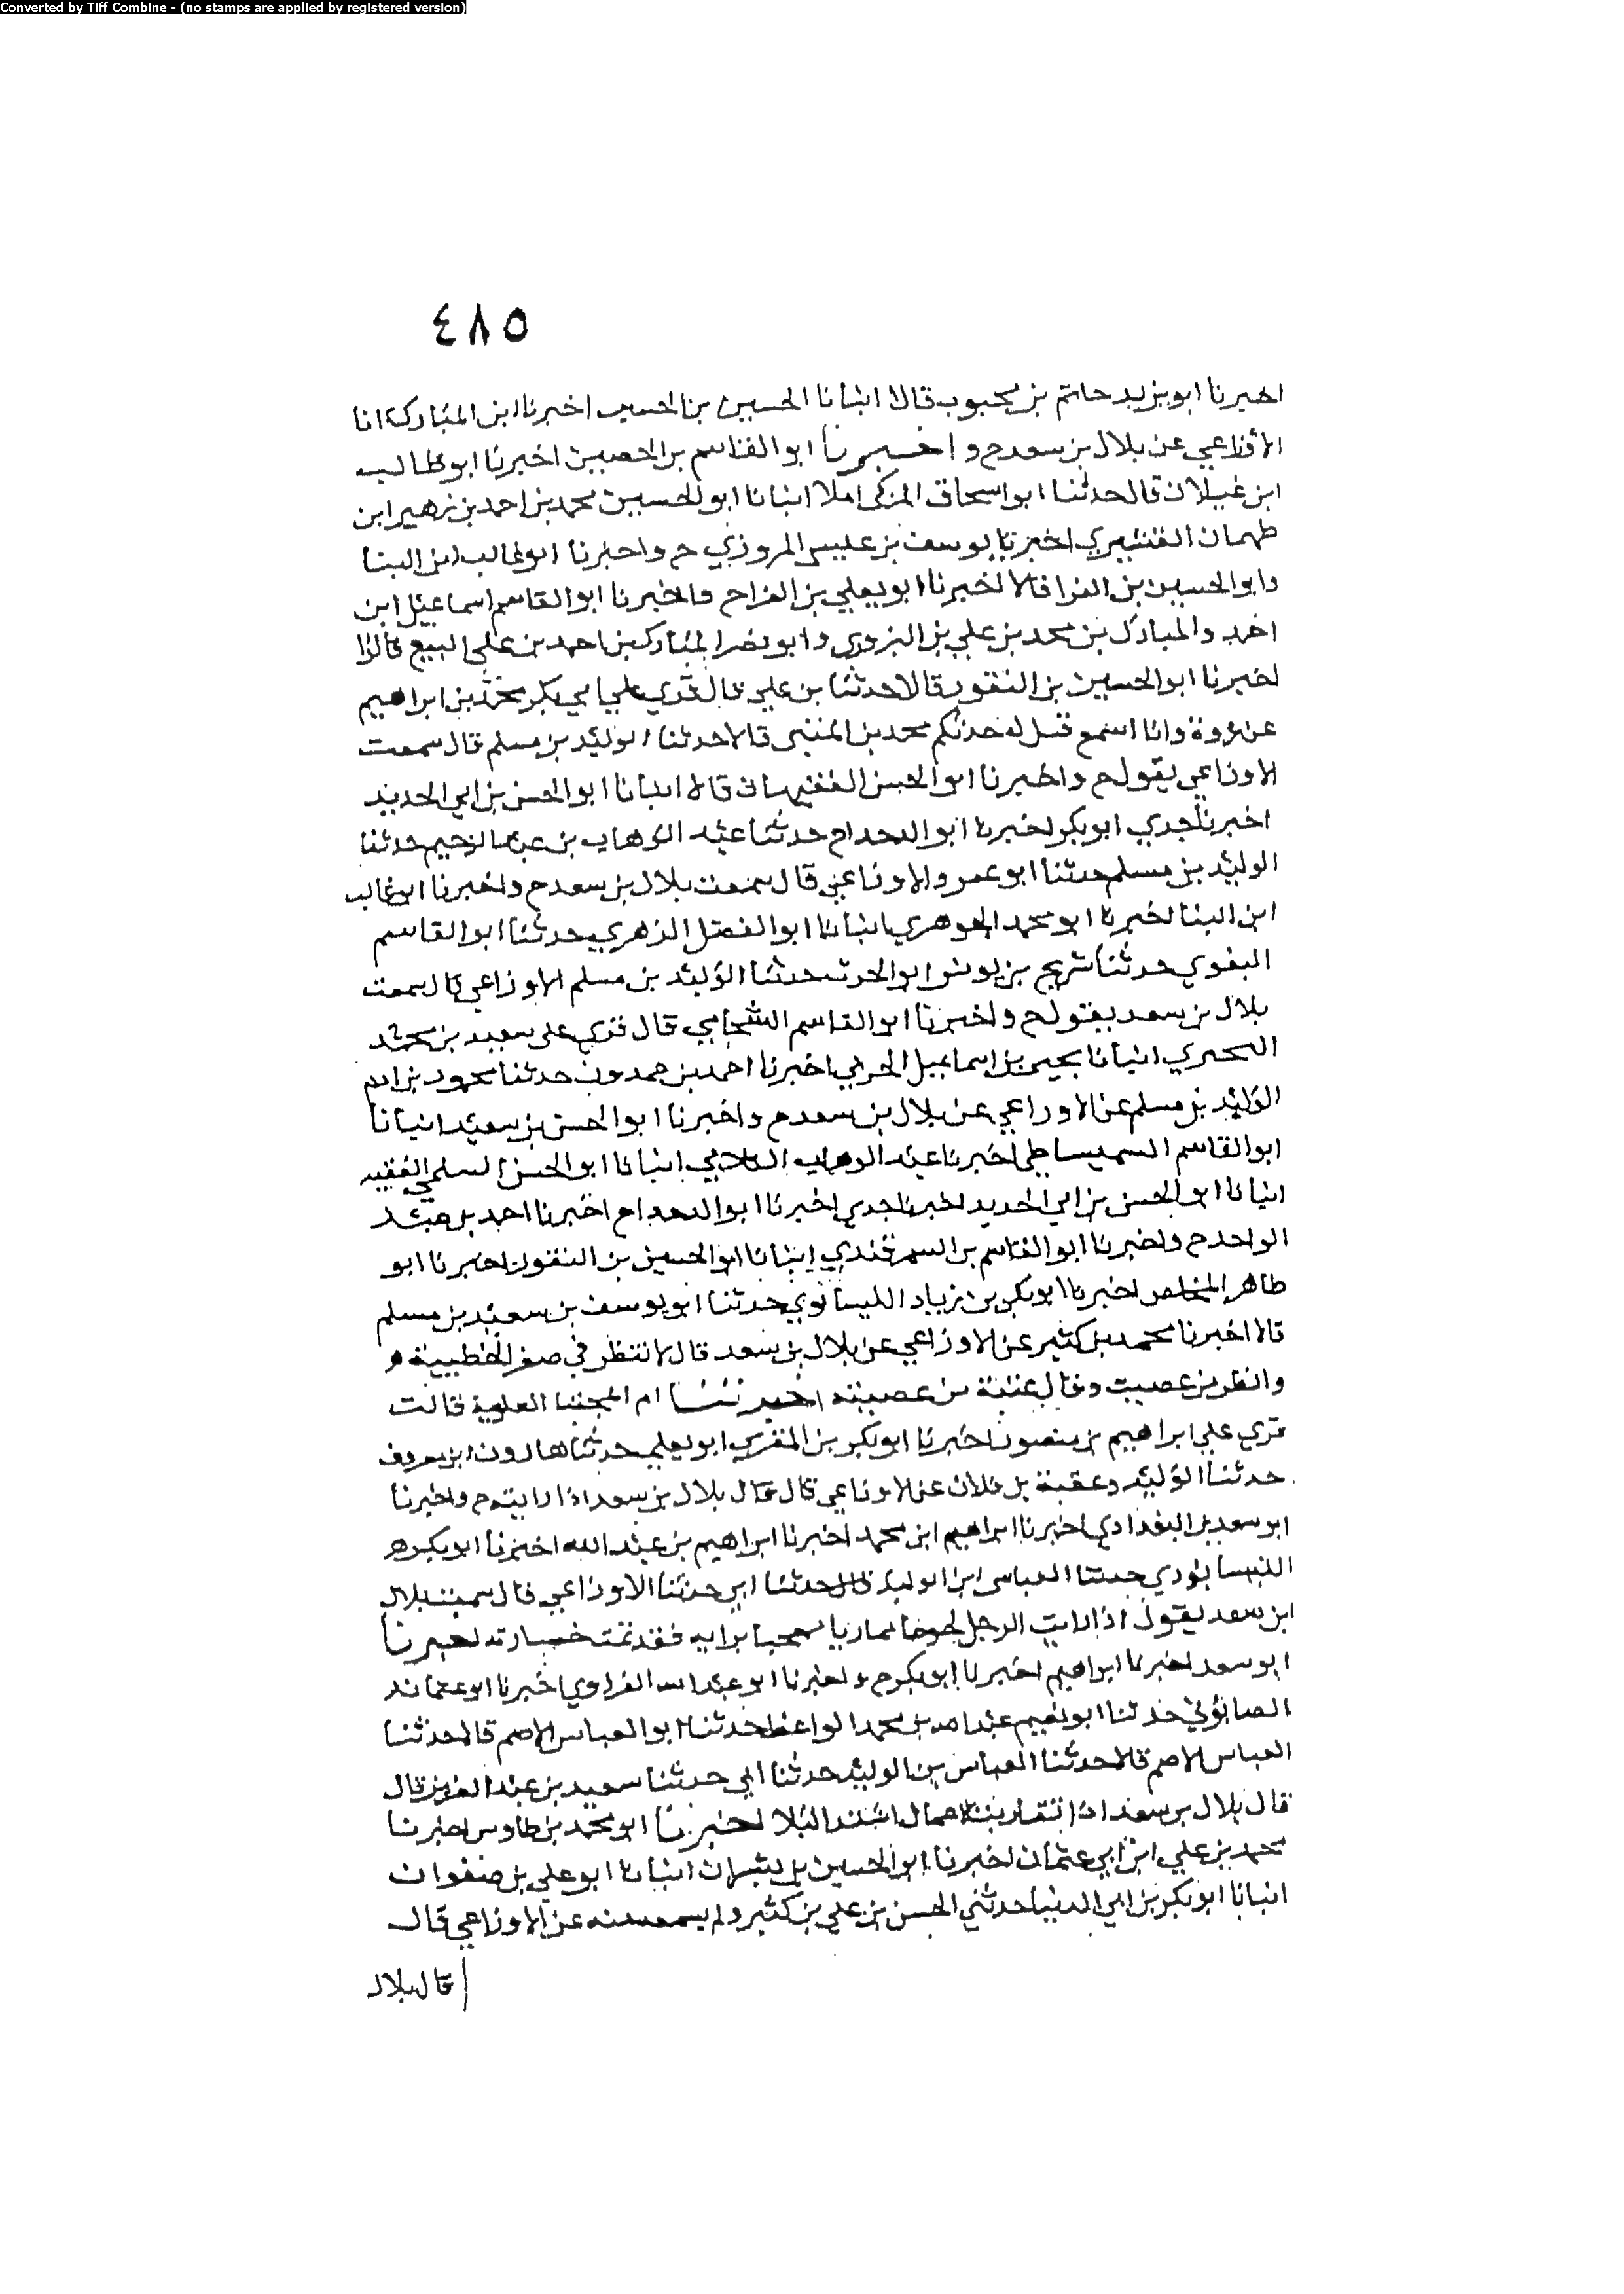 Converted by Tiff Combine - (no stamps are applied by registered version)
٤٨٥
اخبرنا ابو يزيد حاتم بن محبوب قالا انبانا الحسين بن الحسين اخبرنا ابن المبارك انا
الأوزاعي عن بلال بن سعد ح و اخبرنا ابو القاسم بن الحصين اخبرنا ابو طالب
ابن غيلان قال حدثنا ابو اسحاق المزكى املا انبانا ابو الحسين محمد بن احمد بن زهير ابن
طهمان القشيري اخبرنا يوسف بن عيسى المروزي ح واخبرنا ابو غالب ابن البنا
وابو الحسين بن الفرا قالا اخبرنا ابو يعلي بن الفراح واخبرنا ابو القاسم اسماعيل ابن
احمد والمبارك بن محمد بن علي بن البزوري وابو نصر المبارك بن احمد بن علي البيع قالوا
اخبرنا ابو الحسين بن النقور قالا حدثنا بن علي قال قري علي ابي بكر محمد بن ابراهيم
وانا اسمع قيل له حدثكم محمد بن المثنى قالا حدثنا الوليد بن مسلم قال سمعت
الاوزاعي يقول ح واخبرنا ابو الحسن الفقيهان قالا انبانا ابو الحسن بن ابي الحديد
اخبرنا جدي ابو بكر اخبرنا ابو الدحداح حدثنا عبد الوهاب بن عبد الرحيم حدثنا
الوليد بن مسلم حدثنا ابو عمرو الاوزاعي قال سمعت بلال بن سعد ح واخبرنا ابو غالب
ابن البنا اخبرنا ابو محمد الجوهري انبانا ابو الفضل الزهري حدثنا ابو القاسم
البغوي حدثنا شريح بن يونس ابو الحرث حدثنا الوليد بن مسلم الاوزاعي قال سمعت
بلال بن سعد يقول ح واخبرنا ابو القاسم الشحامي قال قري على سعيد بن محمد
البحيري انبانا يحيى بن اسماعيل الحربي اخبرنا احمد بن حمدون حدثنا محمود بن ادم
الوليد بن مسلم عن الاوزاعي عن بلال بن سعد ح واخبرنا ابو الحسن بن سعيد انبانا
ابو القاسم السميساطي اخبرنا عبد الوهاب الكلابي انبانا ابو الحسن السلمي الفقيه
انبانا ابو الحسن بن ابي الحديد اخبرنا جدي اخبرنا ابو الدحداح اخبرنا احمد بن عبد
الواحد ح واخبرنا ابو القاسم بن السمرقندي انبانا ابو الحسين بن النقور اخبرنا ابو
طاهر المخلص اخبرنا ابو بكر بن زياد النيسابوري حدثنا ابو يوسف بن سعيد بن مسلم
قالا اخبرنا محمد بن كثير عن الاوزاعي عن بلال بن سعد قال لا تنظر في صغر الخطيية
وانظر من عصيت وقال من عصيته اخبرتنا ام المجتبا العلوية قالت
قري علي ابراهيم بن منصور اخبرنا ابو بكر بن المقري ابو يعلي حدثنا هارون ابن معروف
حدثنا الوليد وعقبة بن فلان عن الاوزاعي قال قال بلال بن سعد اذا رايته ح واخبرنا
ابو سعد بن البغدادي اخبرنا ابراهيم ابن محمد اخبرنا ابراهيم بن عبد الله اخبرنا ابو بكر
النيسابوري حدثنا العباس ابن الوليد قال حدثنا ابي حدثنا الاوزاعي قال سمعت بلال
ابن سعد يقول اذا رايت الرجل لجوجا مماريا معجبا برايه فقد تمت خسارته اخبرنا
ابو سعد اخبرنا ابراهيم اخبرنا ابو بكر ح واخبرنا ابو عبد الله الفراوي اخبرنا ابو عثمان
الصابوني حدثنا ابو نعيم عبد الله بن محمد الواعظ حدثنا ابو العباس الاصم قالا حدثنا
العباس الاصم قالا حدثنا العباس بن الوليد حدثنا ابي حدثنا سعيد بن عبد العزيز قال
قال بلال بن سعد اذا تقاربت الاعمال اشتد البلا اخبرنا ابو محمد بن طاوس اخبرنا
محمد بن علي ابن ابي عثمان اخبرنا ابو الحسين بن بشران انبانا ابو علي بن صفوان
انبانا ابو بكر بن ابي الدنيا حدثني الحسن بن علي بن كثير ولم يسمعه منه عن الاوزاعي قال
قال بلال